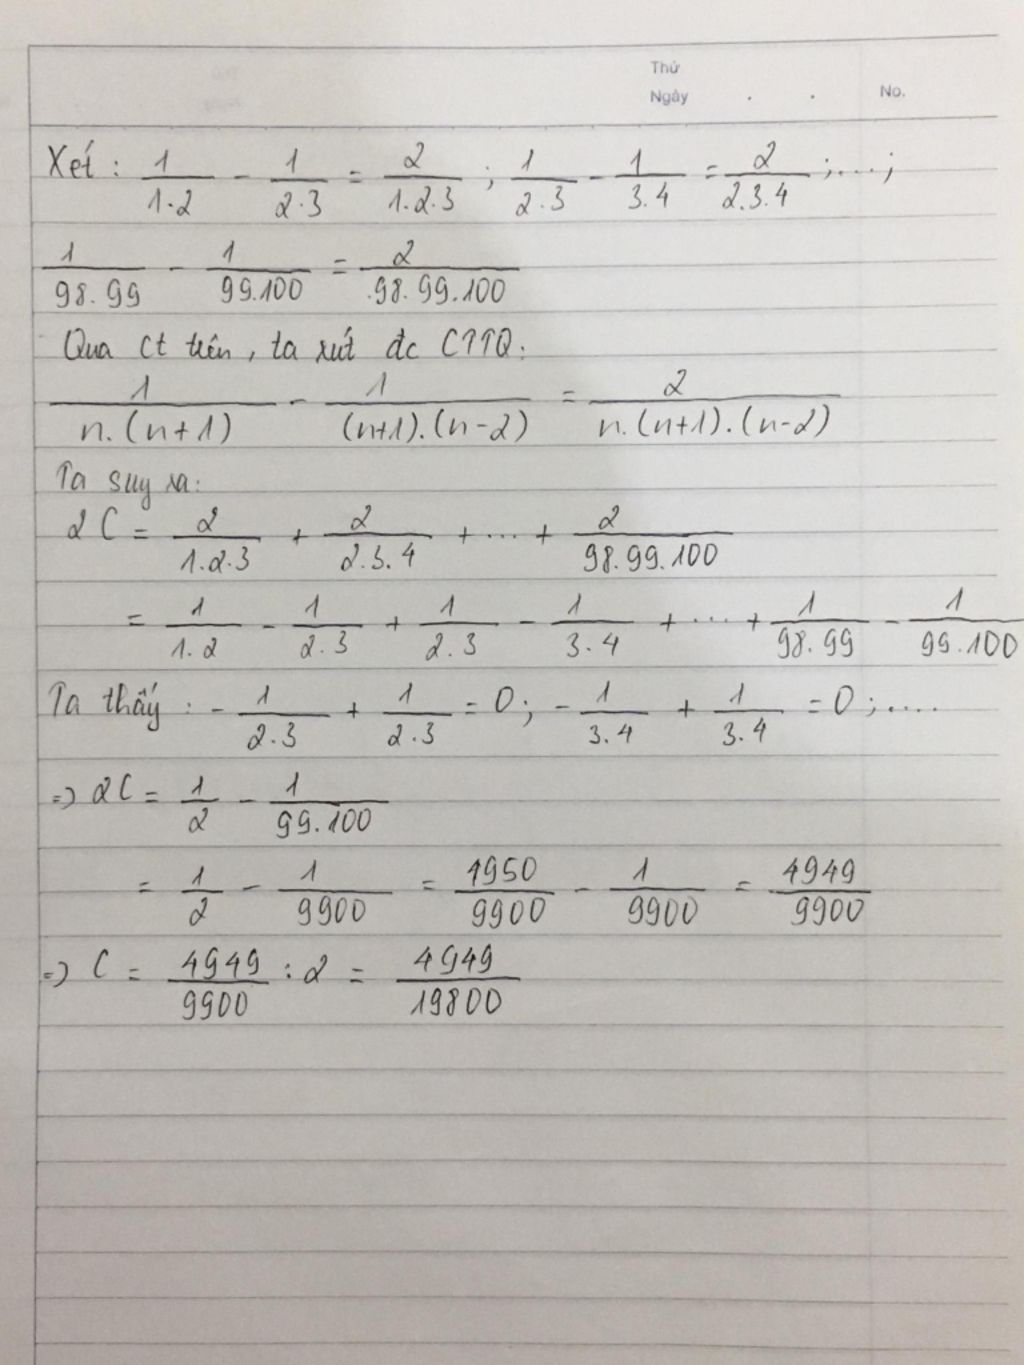 Thứ
Ngày . . No.
Xét : 1/1.2 - 1/2.3 = 2/1.2.3 ; 1/2.3 - 1/3.4 = 2/2.3.4 ;....;
1/98.99 - 1/99.100 = 2/.98.99.100
Qua ct trên, ta rút đc CTTQ:
1/n.(n+1) - 1/(n+1).(n-2) = 2/n.(n+1).(n-2)
Ta suy ra:
2C = 2/1.2.3 + 2/2.3.4 + ... + 2/98.99.100
= 1/1.2 - 1/2.3 + 1/2.3 - 1/3.4 + ... + 1/98.99 - 1/99.100
Ta thấy : - 1/2.3 + 1/2.3 = 0; - 1/3.4 + 1/3.4 = 0;....
=> 2C = 1/2 - 1/99.100
= 1/2 - 1/9900 = 4950/9900 - 1/9900 = 4949/9900
=> C = 4949/9900 : 2 = 4949/19800